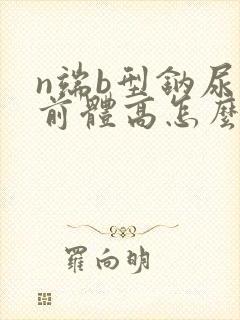 n端b型鈉尿
前體高怎麼
羅向明